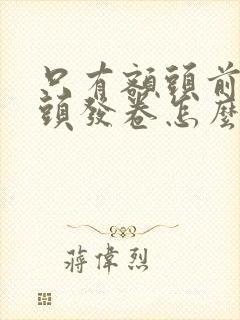 只有額頭前
頭發卷怎麼
蔣偉烈